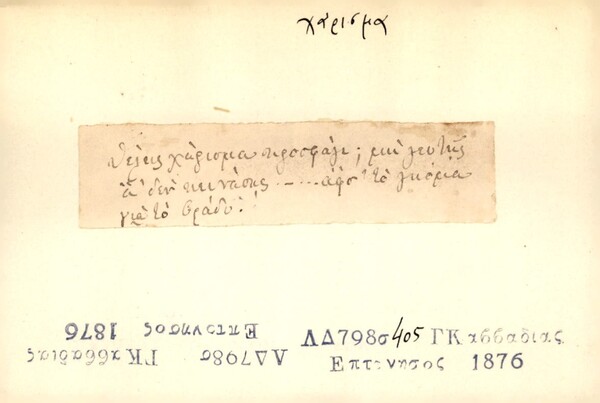 χάρισμα
θέλεις χάρισμα προσφάγι; μὴ γευτῆς
ἂ δὲν πεινάσῃς — .... ἄφσ' τὸ
γιὰ τὸ βράδυ!
ΛΔ798σ405 ΓΚαββαδιας
Επτονησος 1876
ΛΔ798σ ΓΚαββαδιας
Επτονησος 1876